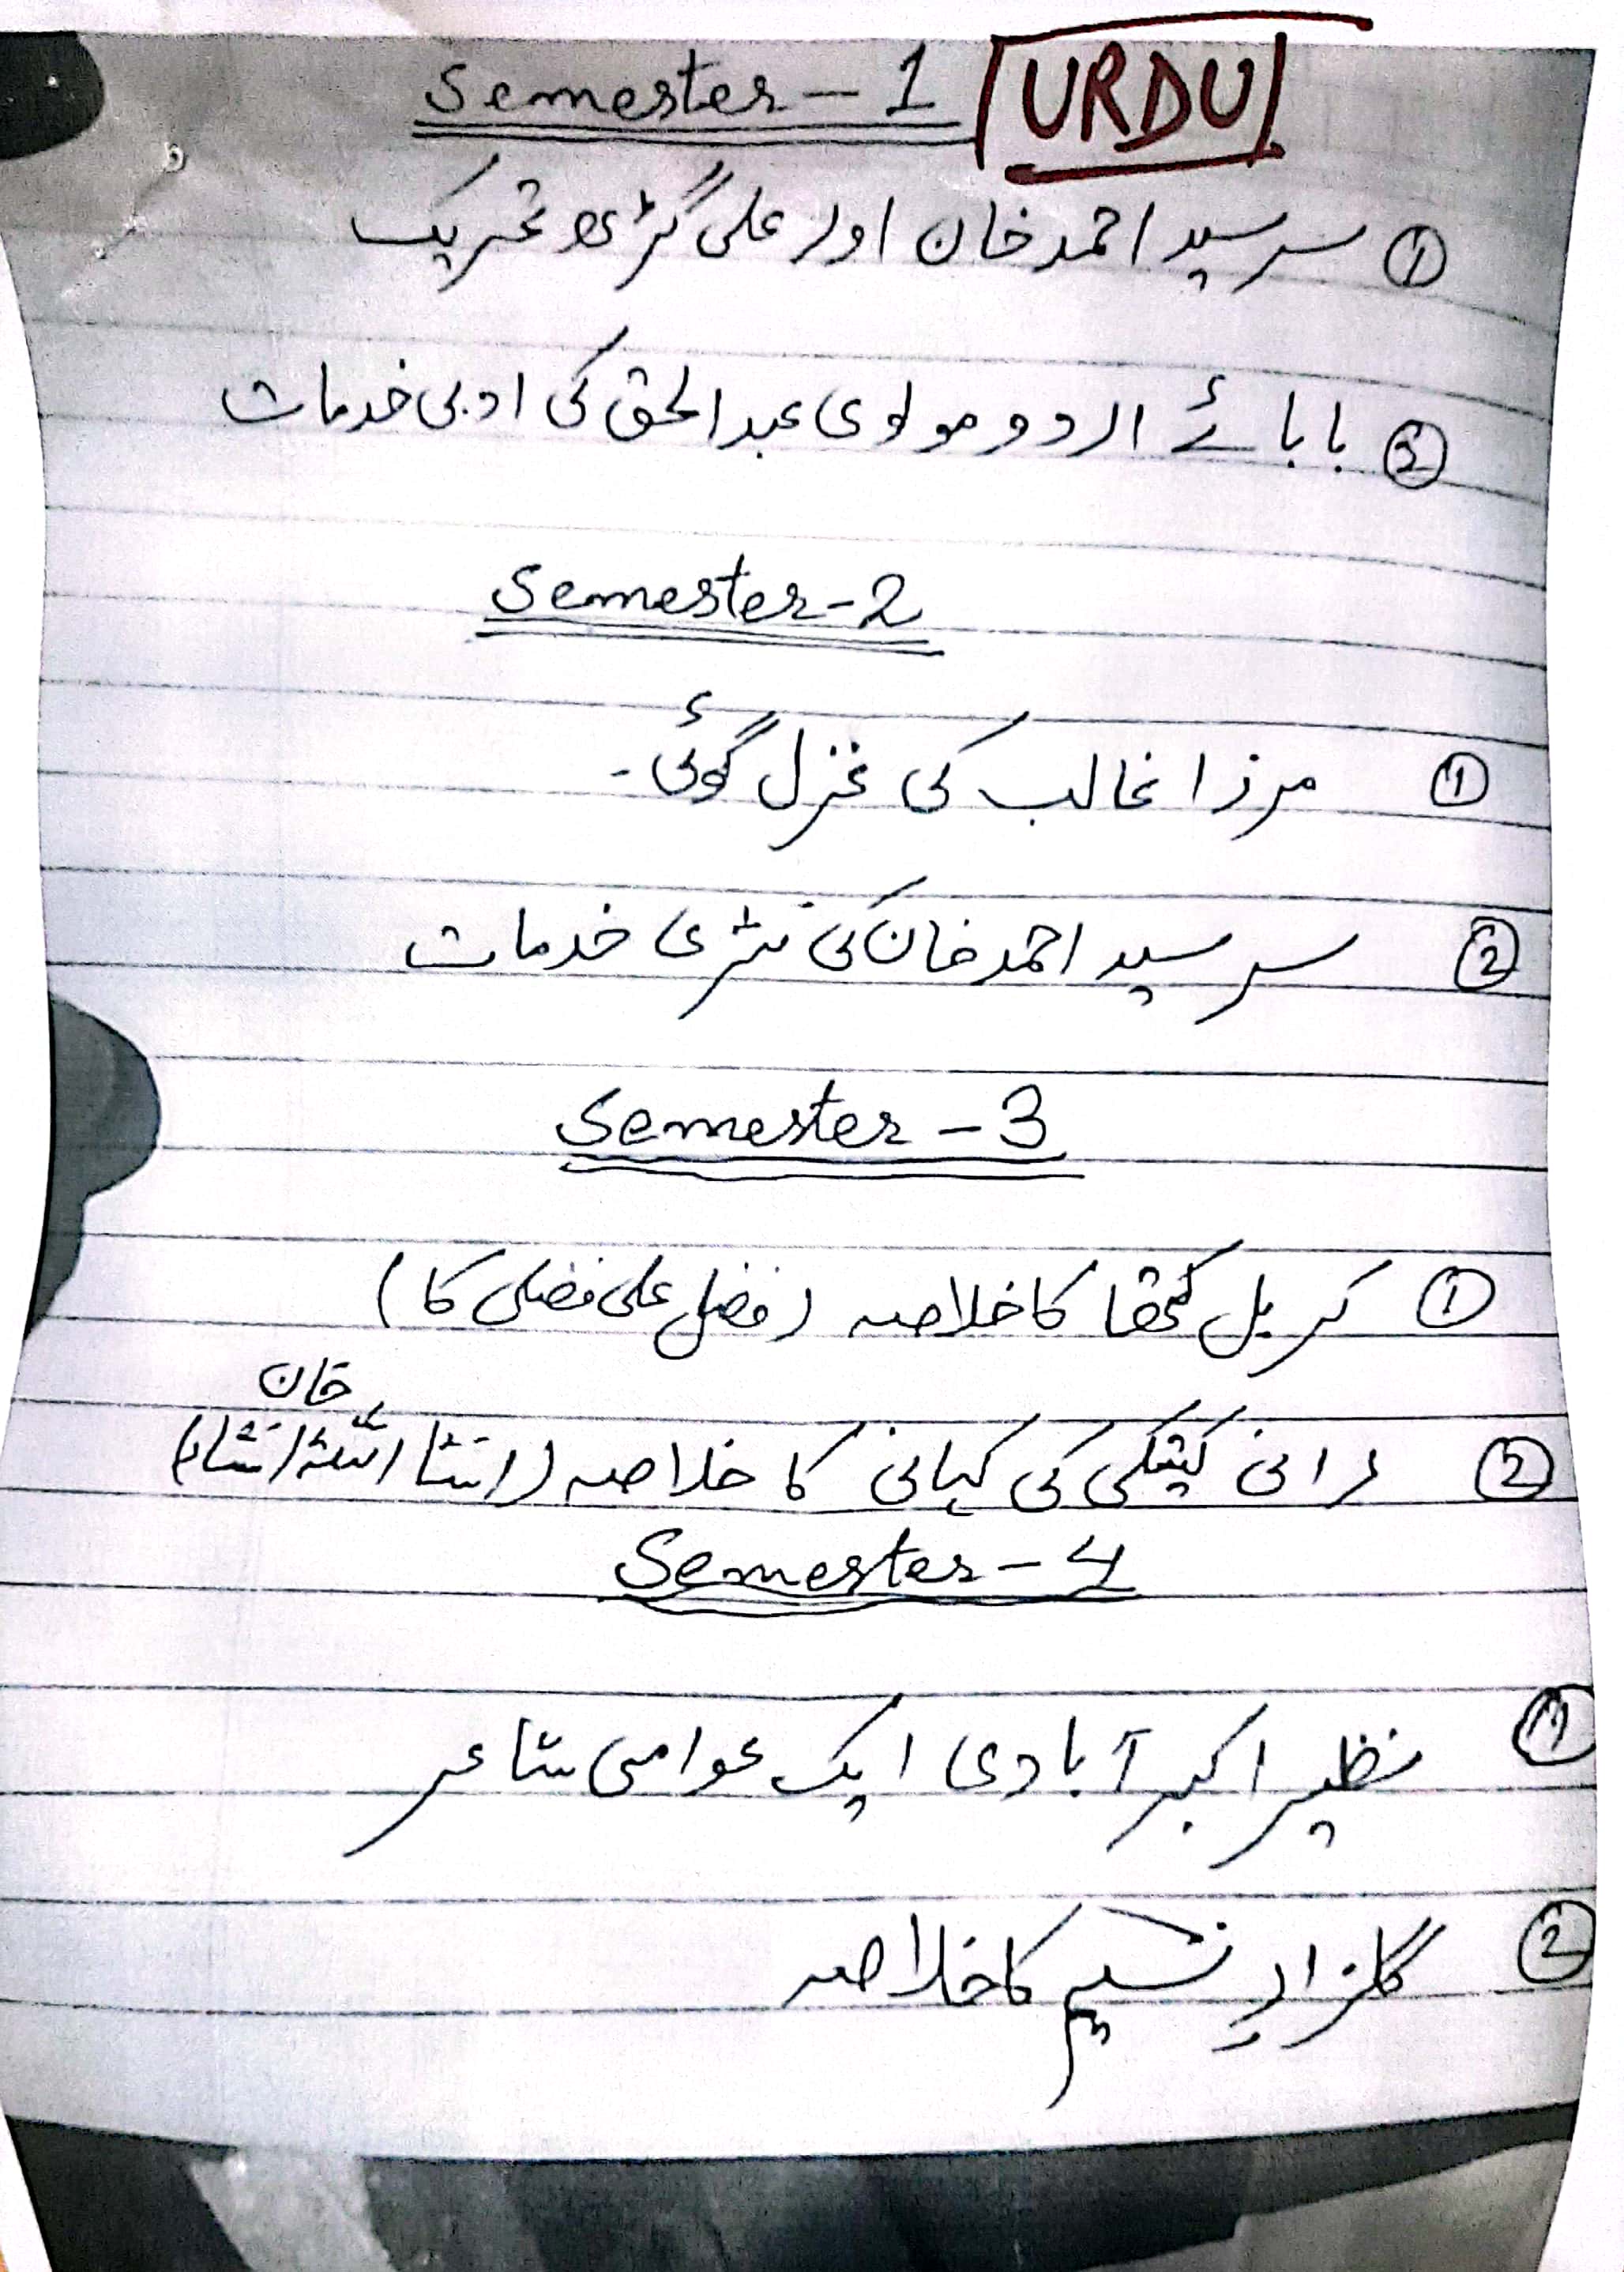 Semester - 1 URDU
① سر سید احمد خان اور علی گڑھ تحریک
② بابائے اردو مولوی عبدالحق کی ادبی خدمات
Semester - 2
① مرزا غالب کی غزل گوئی۔
② سر سید احمد خان کی نثری خدمات
Semester - 3
① کربل کتھا کا خلاصہ (فضل علی فضلی کا)
خان
② رانی کیتکی کی کہانی کا خلاصہ (انشا اللہ انشاء)
Semester - 4
① نظیر اکبر آبادی ایک عوامی شاعر
② گلزارِ نسیم کا خلاصہ